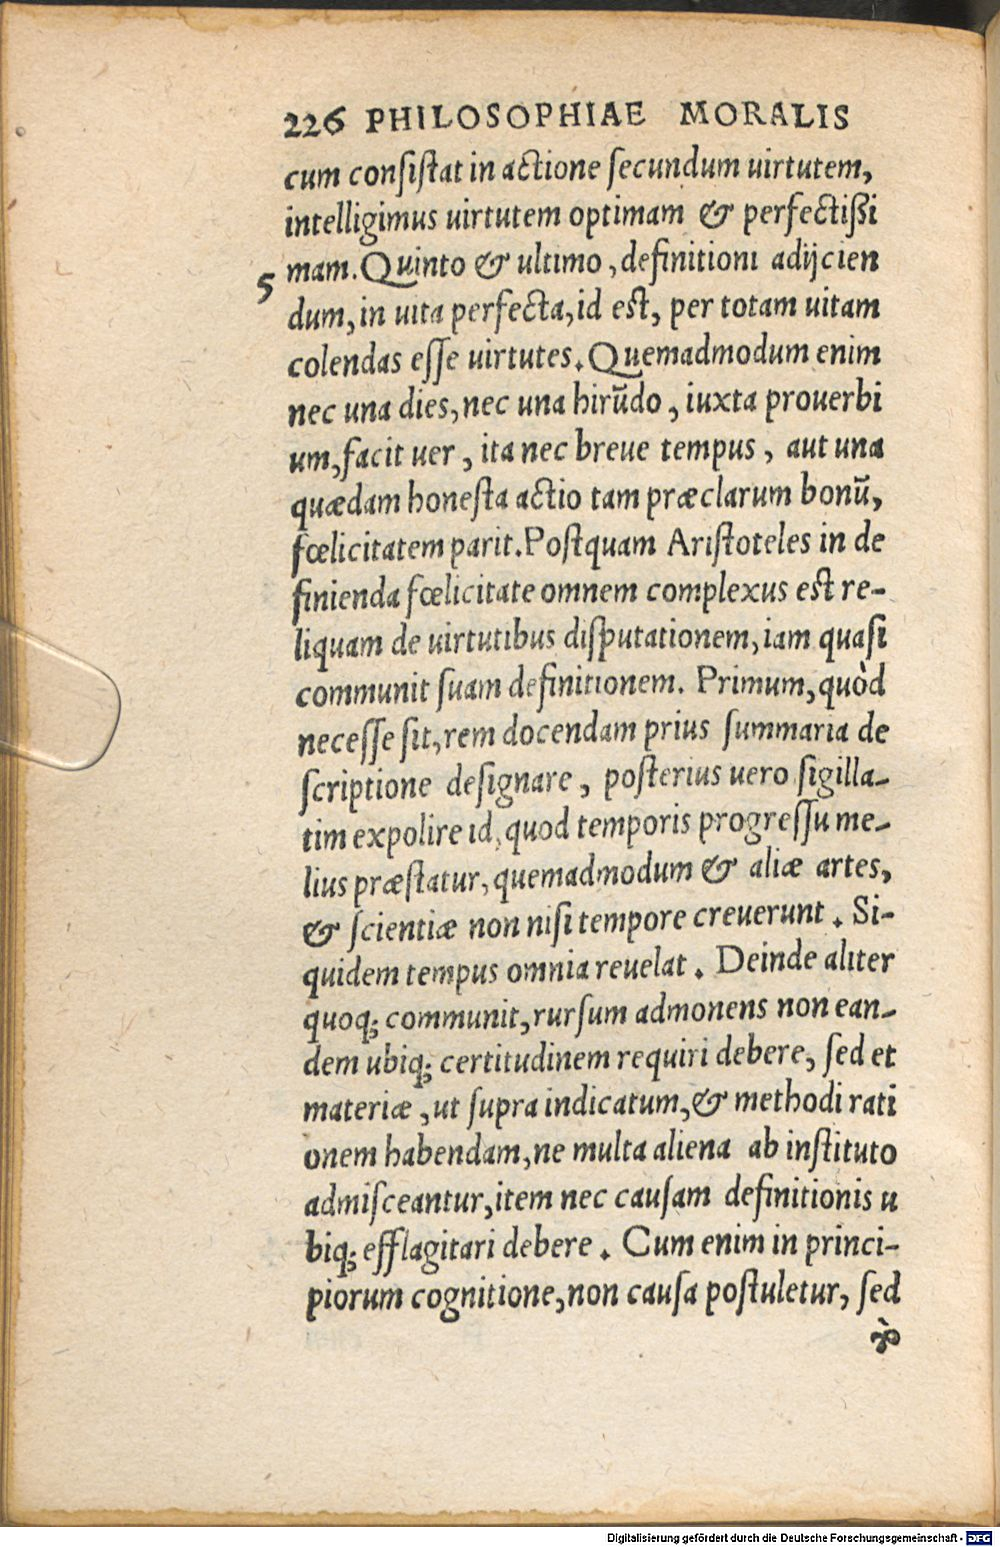 226 PHILOSOPHIAE MORALIS
cum conſiſtat in actione ſecundum uirtutem,
intelligimus uirtutem optimam & perfectißi
mam. Quinto & ultimo, definitioni adijcien
5
dum, in uita perfecta, id est, per totam uitam
colendas eſſe uirtutes. Quemadmodum enim
nec una dies, nec una hirūdo, iuxta prouerbi
um, facit uer, ita nec breue tempus, aut una
quædam honeſta actio tam præclarum bonū,
fœlicitatem parit. Poſtquam Ariſtoteles in de
finienda fœlicitate omnem complexus eſt re-
liquam de uirtutibus diſputationem, iam quaſi
communit ſuam definitionem. Primum, quòd
neceſſe ſit, rem docendam prius ſummaria de
ſcriptione deſignare, poſterius uero ſigilla-
tim expolire id, quod temporis progreſſu me-
lius præſtatur, quemadmodum & aliæ artes,
& ſcientiæ non niſi tempore creuerunt. Si-
quidem tempus omnia reuelat. Deinde aliter
quoq; communit, rurſum admonens non ean-
dem ubiq; certitudinem requiri debere, ſed et
materiæ, ut ſupra indicatum, & methodi rati
onem habendam, ne multa aliena ab inſtituto
admiſceantur, item nec cauſam definitionis u
biq; efflagitari debere. Cum enim in princi-
piorum cognitione, non cauſa poſtuletur, ſed
Digitalisierung gefördert durch die Deutsche Forschungsgemeinschaft - DFG